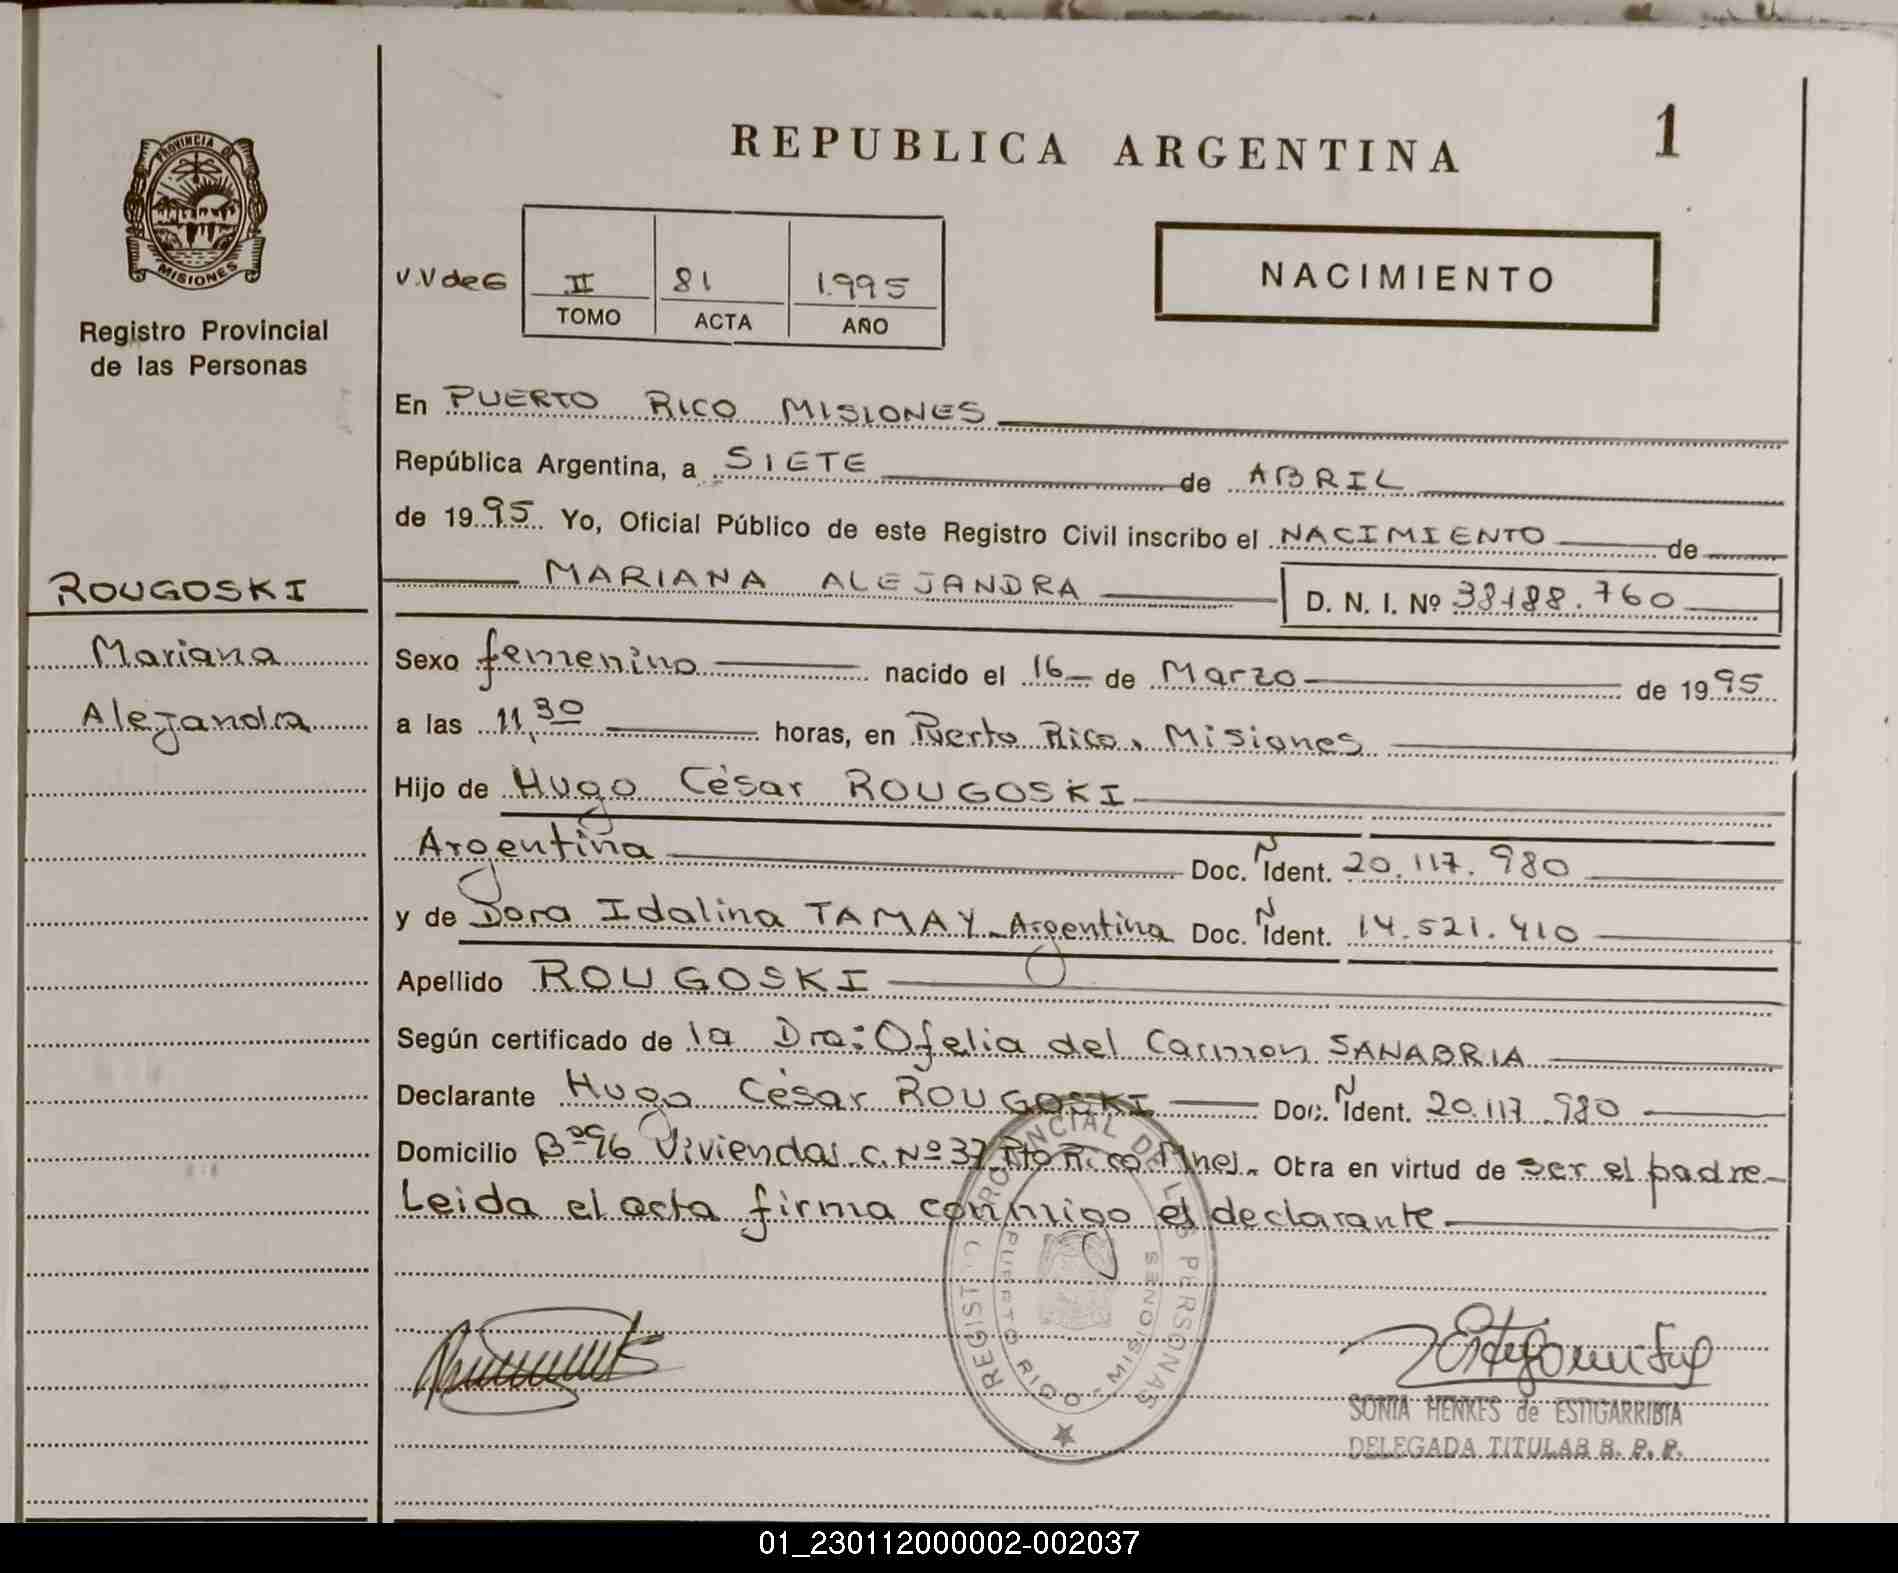 REPUBLICA ARGENTINA
1
PROVINCIA DE
MISIONES
Registro Provincial
de las Personas
V.V de G
II
81
1.995
TOMO
ACTA
AÑO
NACIMIENTO
En PUERTO RICO MISIONES
República Argentina, a SIETE de ABRIL
de 1995 Yo, Oficial Público de este Registro Civil inscribo el NACIMIENTO de
MARIANA ALEJANDRA D. N. I. Nº 38188.760
ROUGOSKI
Mariana
Alejandra
Sexo femenino nacido el 16 de Marzo de 1995
a las 11,30 horas, en Puerto Rico, Misiones
Hijo de Hugo César ROUGOSKI
Argentina Doc. N Ident. 20.117.980
y de Dora Idalina TAMAY - Argentina Doc. N Ident. 14.521.410
Apellido ROUGOSKI
Según certificado de la Dra: Ofelia del Carmen SANABRIA
Declarante Hugo César ROUGOSKI Doc. N Ident. 20.117.980
Domicilio Bº 96 Viviendas C. Nº 37 Pto Rico Mnes. Obra en virtud de ser el padre-
Leida el acta firma conmigo el declarante
REGISTRO PROVINCIAL DE LAS PERSONAS
PUERTO RICO - MISIONES
SONIA HENKES de ESTIGARRIBIA
DELEGADA TITULAR R. P. P.
01_230112000002-002037